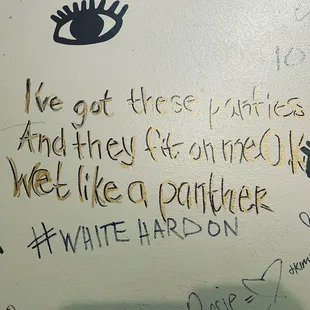 10
I've got these panties
And they fit on me OK
Wet like a panther
#WHITE HARDON